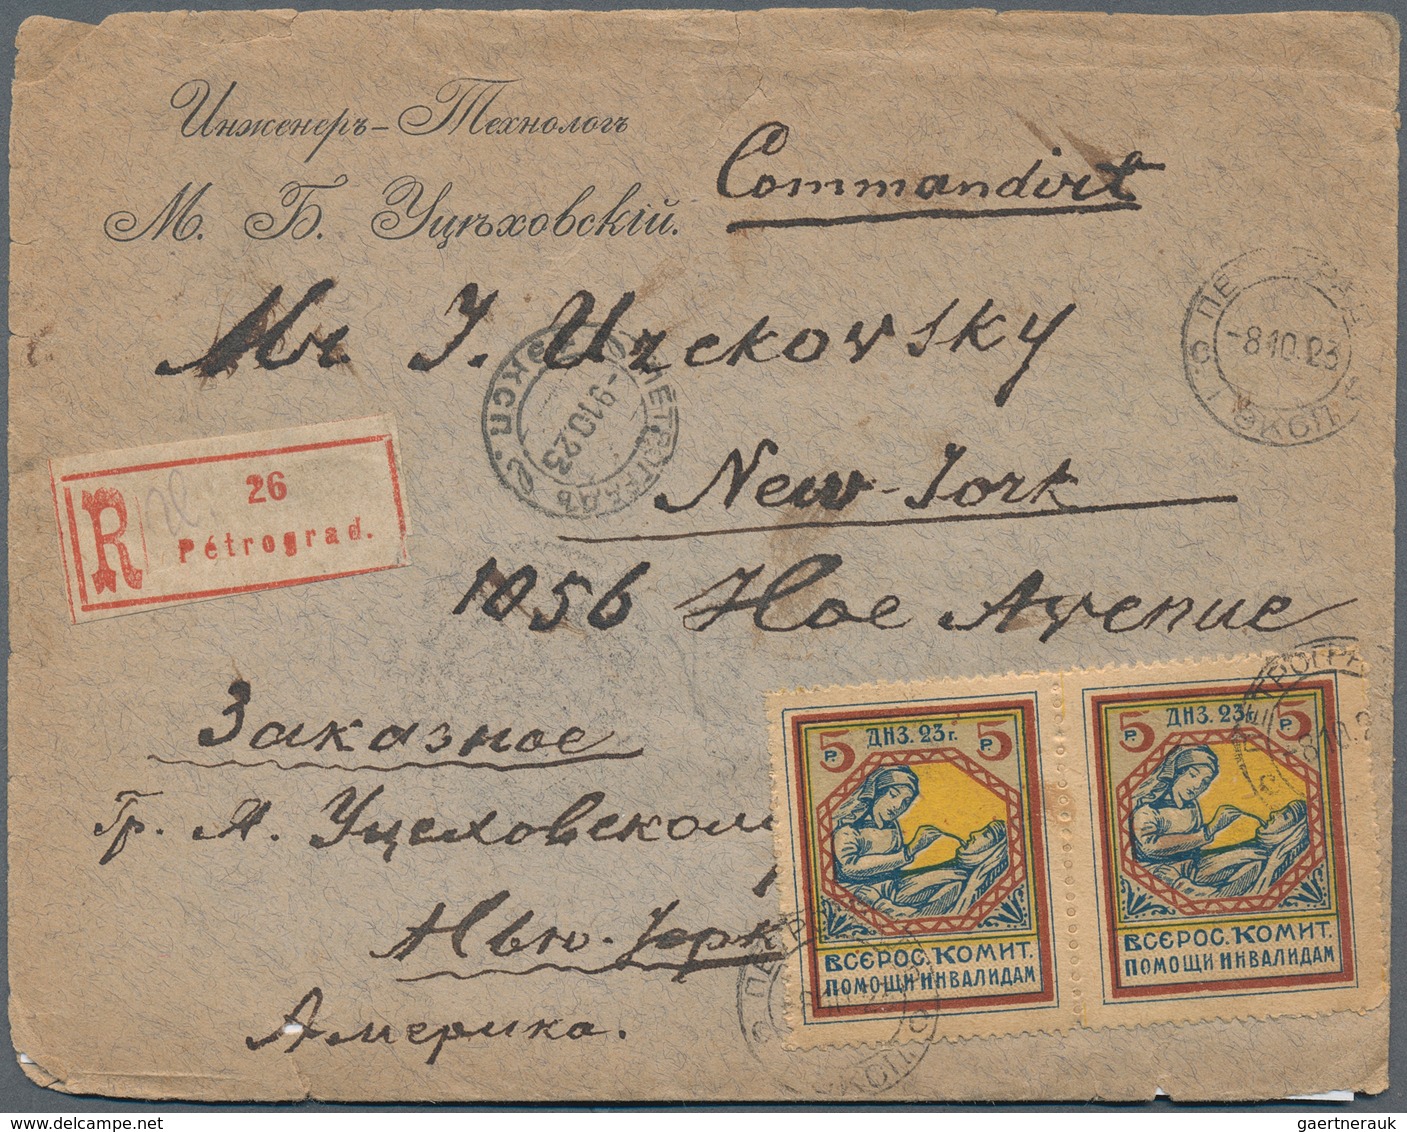 Инженеръ-Технологъ
М. Б. Уцѣховскій.
Commandirt
Mr J. Uzekovsky
New-York
1056 Hoe Avenue
R
26
Pétrograd.
-8.10.23
ЭКСП.
ПЕТРОГРАДЪ
-9.10.23
ЭКСП.
Заказное
Гр. Я. Уцеховскому
Нью-Йорк
Америка.
5 Р. ДНЗ. 23 г. 5 Р.
ВСЄРОС. КОМИТ.
ПОМОЩИ ИНВАЛИДАМ
5 Р. ДНЗ. 23 г. 5 Р.
ВСЄРОС. КОМИТ.
ПОМОЩИ ИНВАЛИДАМ
gaertnerauk